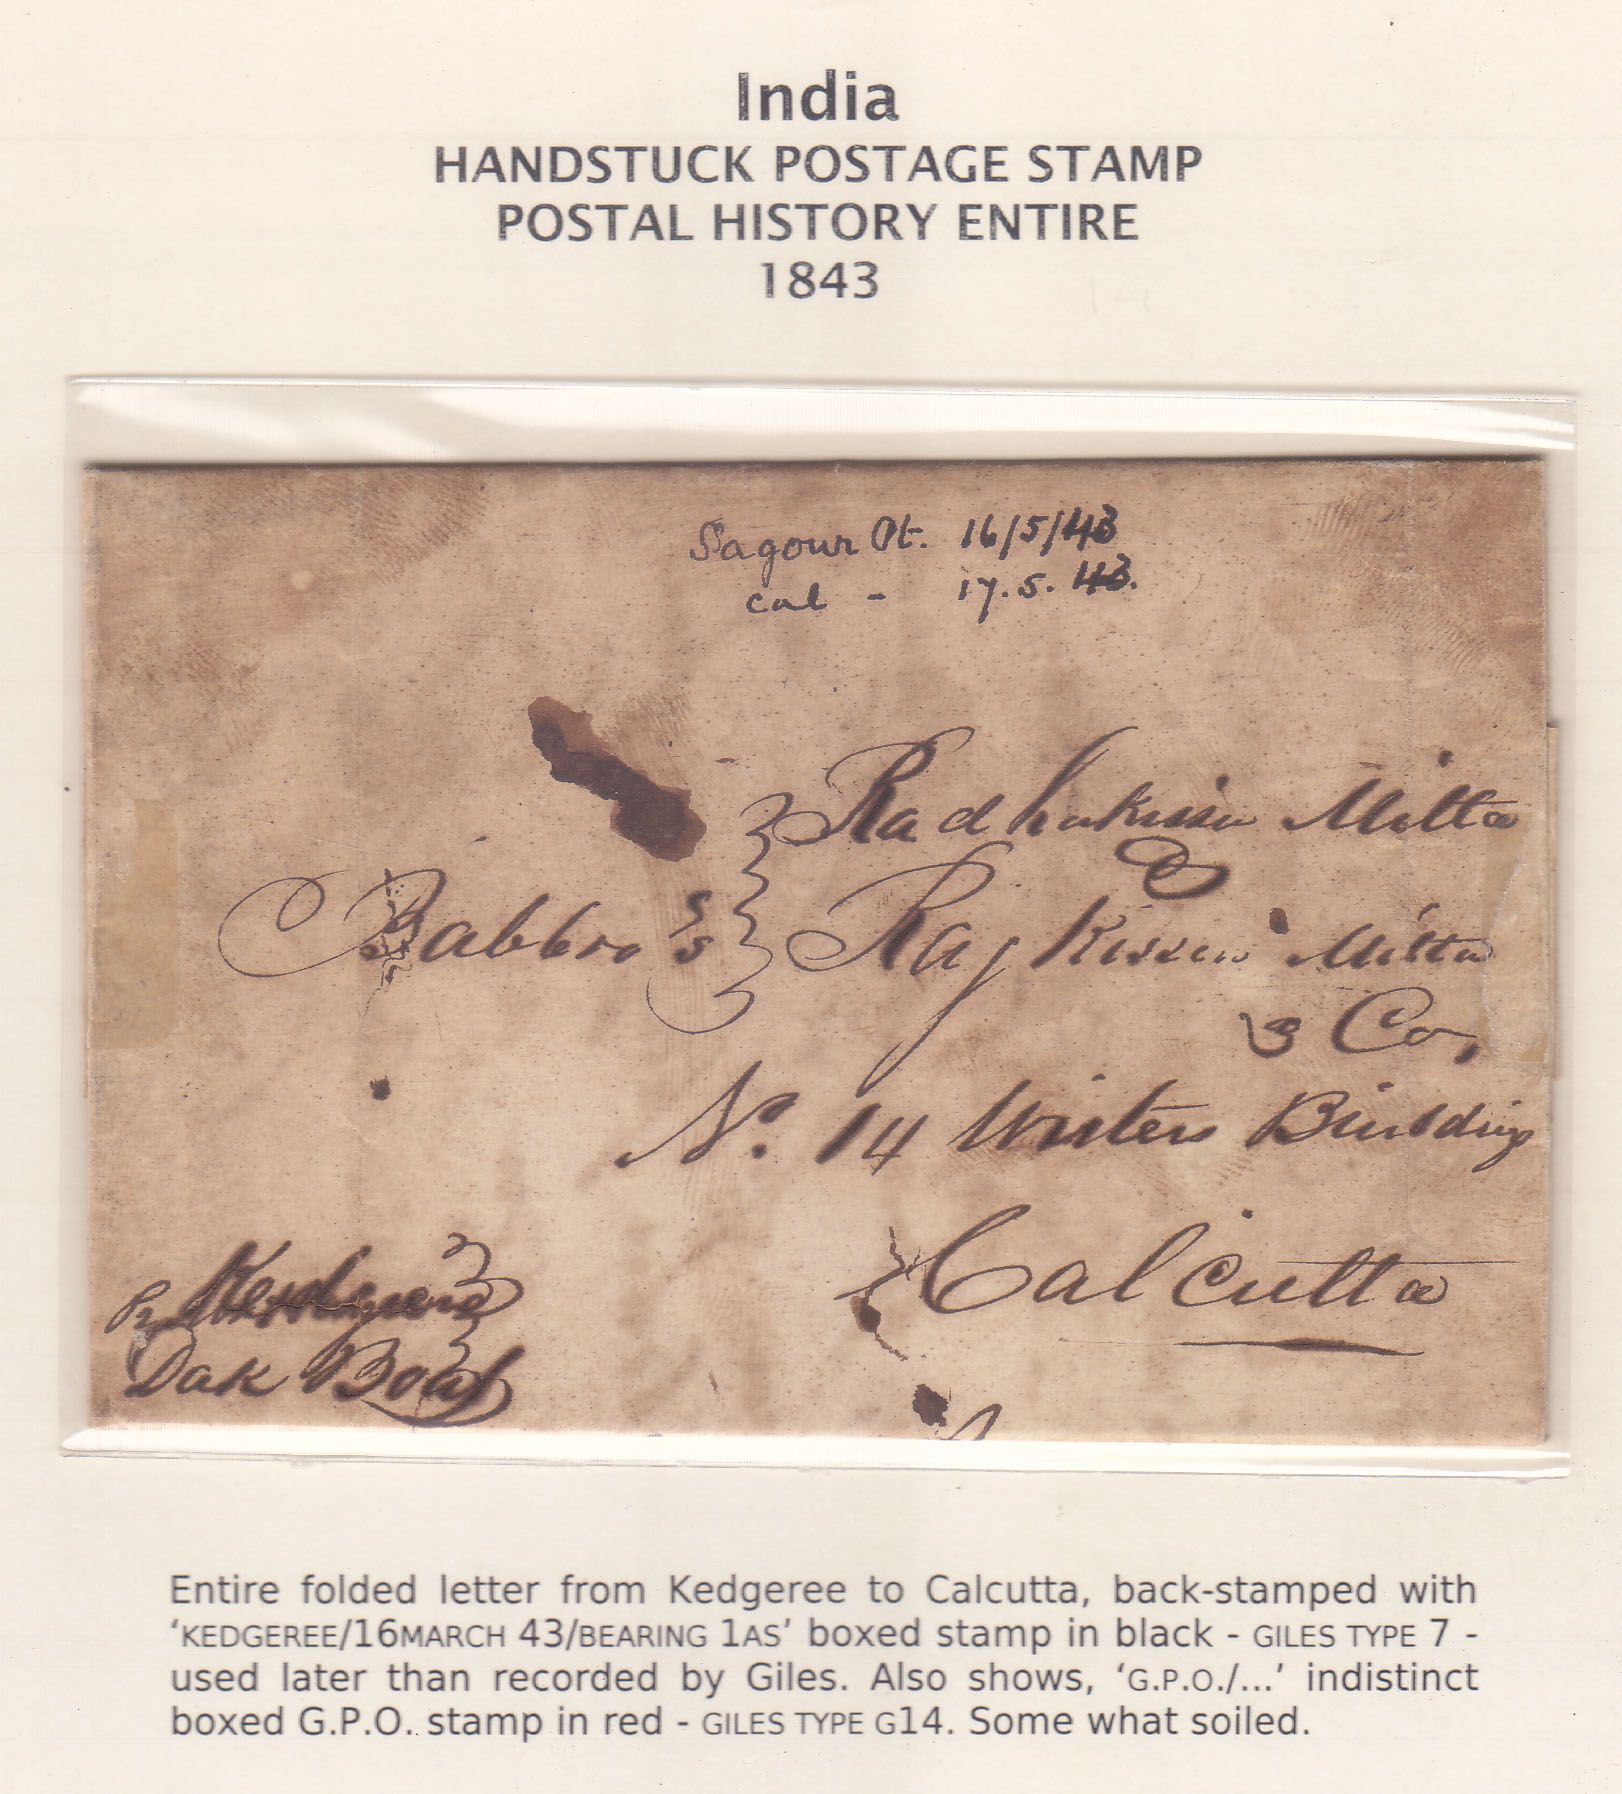 India
HANDSTUCK POSTAGE STAMP
POSTAL HISTORY ENTIRE
1843
Sagour Pt. 16/5/43
cal - 17.5.43.
Radhakissen Mitta
&
Babboos Rajkissen Mitta
& Co,
No. 14 Writers Buildings
Calcutta
Pr Kedgeree
Dak Boat
Entire folded letter from Kedgeree to Calcutta, back-stamped with
‘KEDGEREE/16MARCH 43/BEARING 1AS’ boxed stamp in black - GILES TYPE 7 -
used later than recorded by Giles. Also shows, ‘G.P.O./...’ indistinct
boxed G.P.O. stamp in red - GILES TYPE G14. Some what soiled.